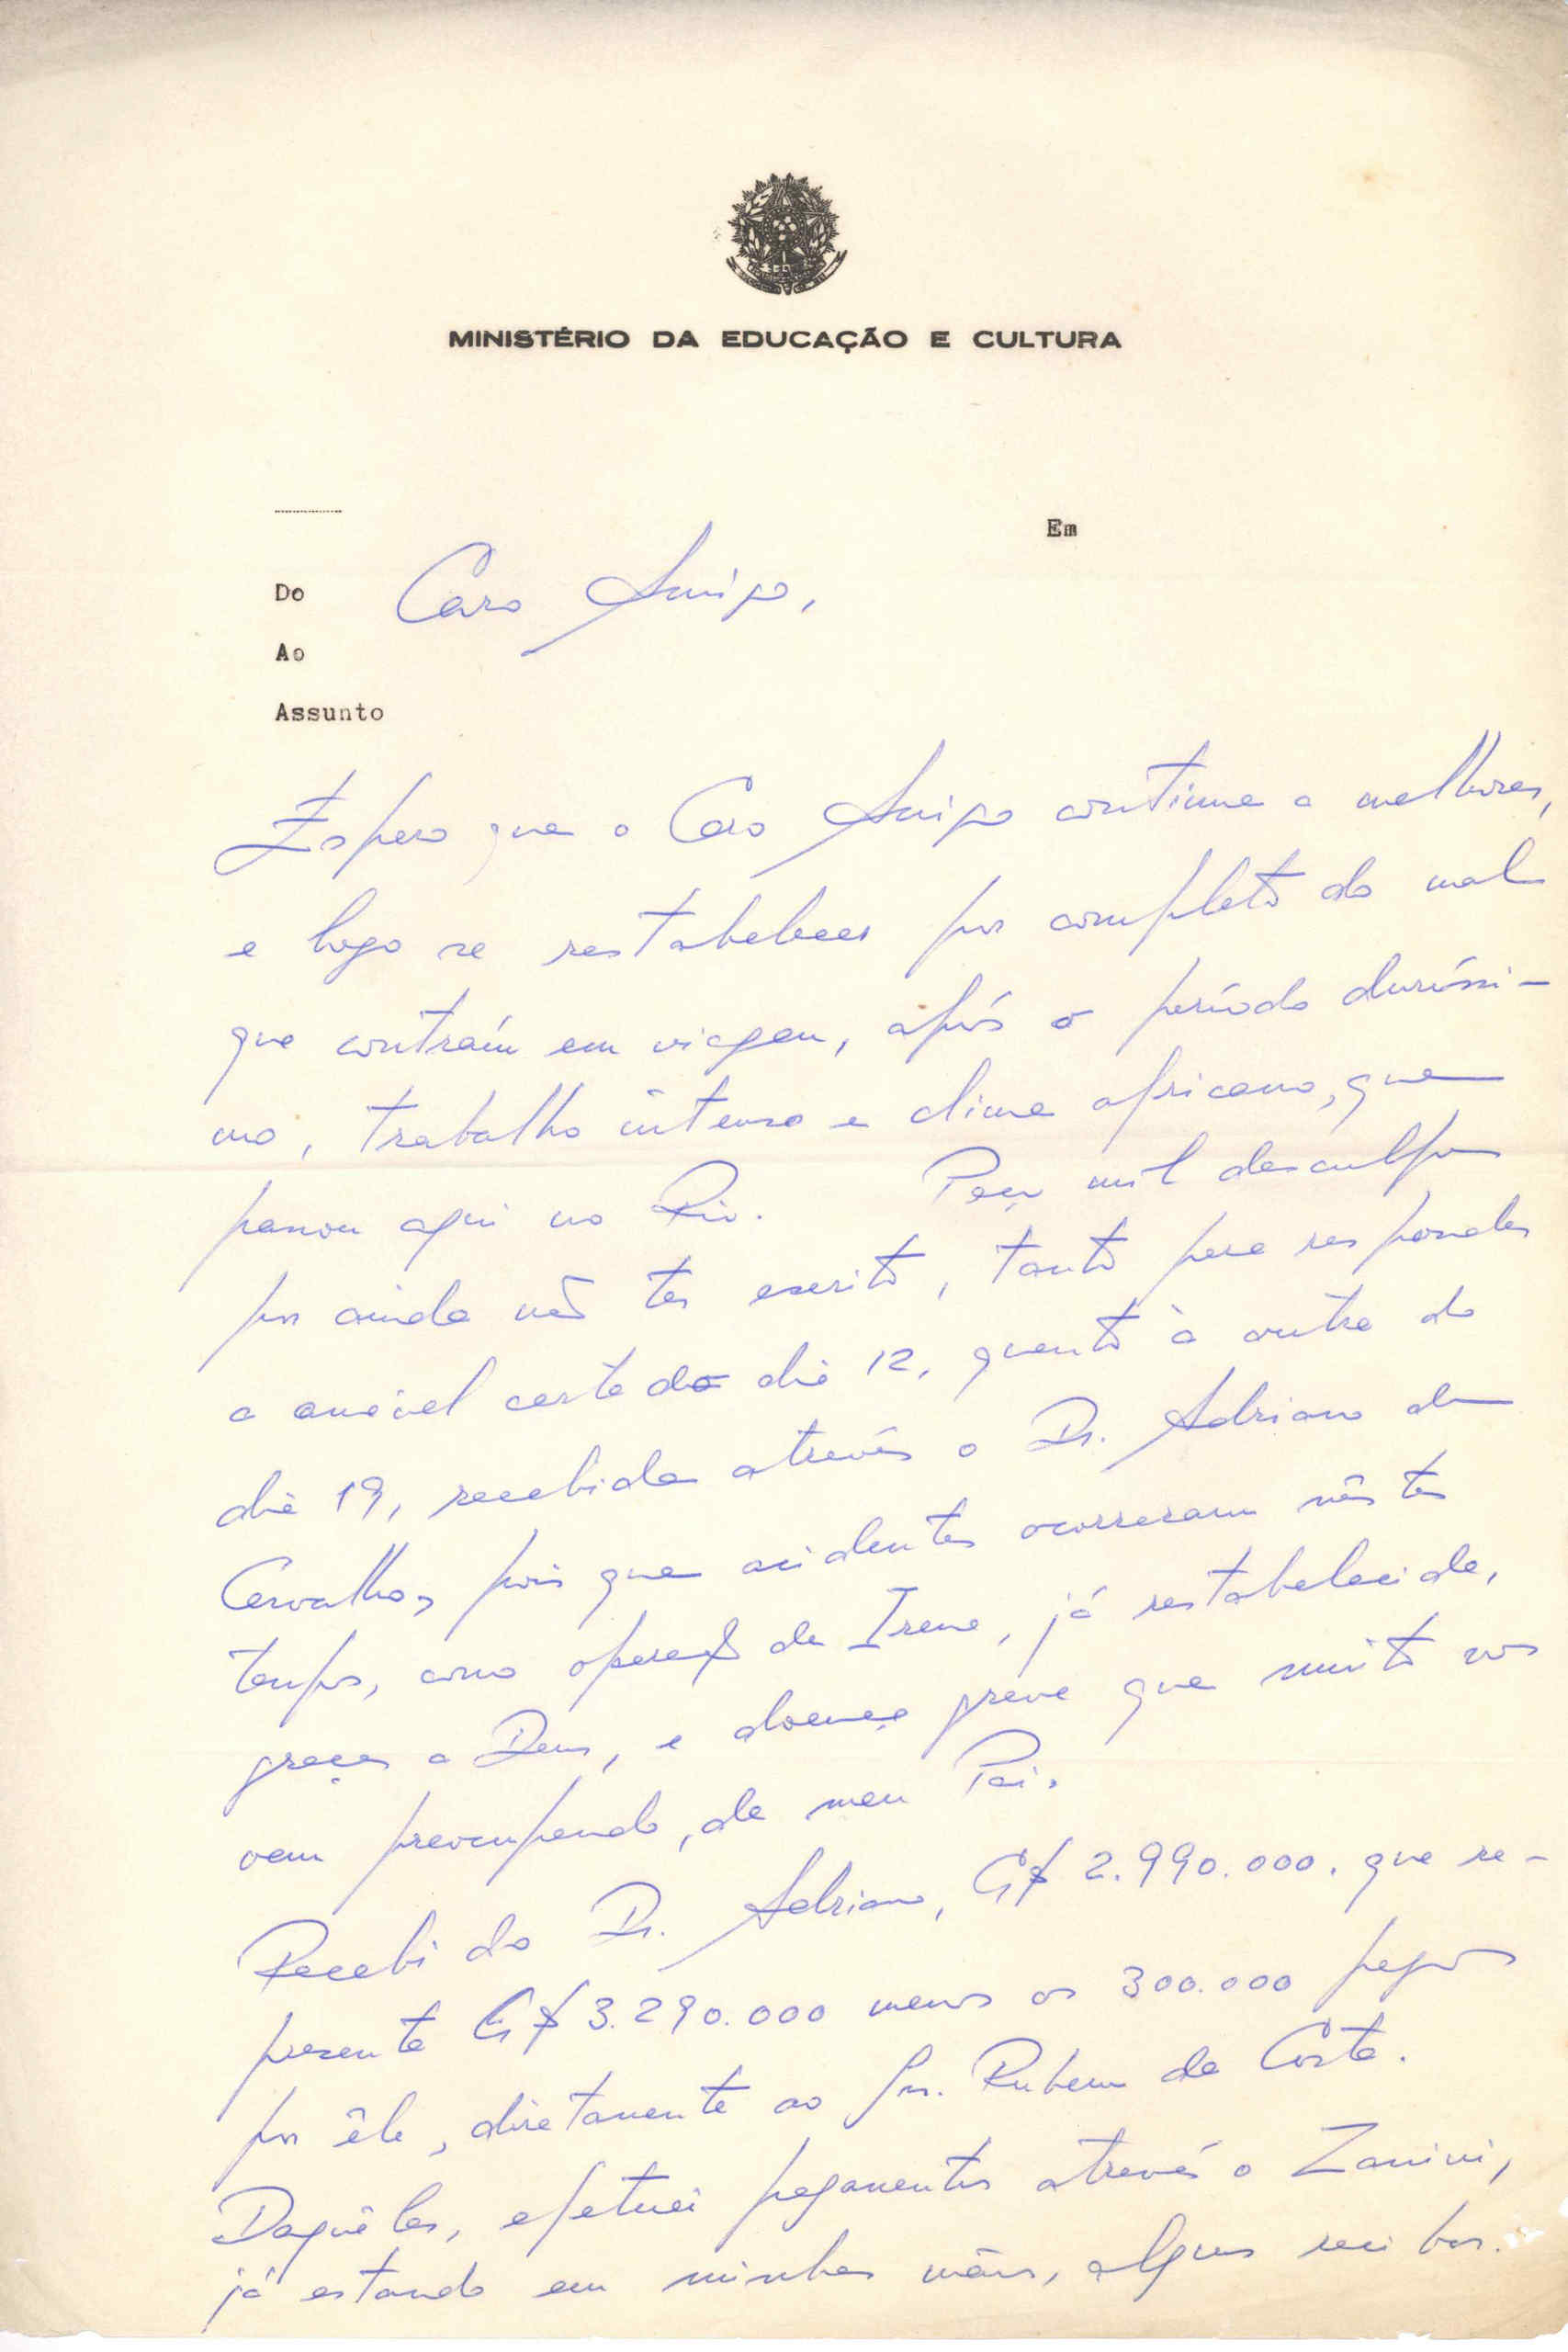 MINISTÉRIO DA EDUCAÇÃO E CULTURA
Em
Do
Caro Amigo,
Ao
Assunto
Espero que o Caro Amigo continue a melhorar,
e logo se restabelecer por completo do mal
que contraiu em viagem, após o período duríssi-
mo, trabalho intenso e clima africano, que
passou aqui no Rio. Peço mil desculpas
por ainda não ter escrito, tanto para responder
a amável carta do dia 12, quanto à outra do
dia 19, recebida através o Dr. Adriano de
Carvalho, pois que acidentes ocorreram nêste
tempo, como operação de Irene, já restabelecida,
graças a Deus, e doença grave que muito nos
vem preocupando, de meu Pai.
Recebi do Dr. Adriano, Cr$ 2.990.000. que re-
presenta Cr$ 3.290.000 menos os 300.000 pagos
por êle, diretamente ao Sr. Rubem da Costa.
Daquêles, efetuei pagamentos através o Zanini,
já estando em minhas mãos, alguns recibos.